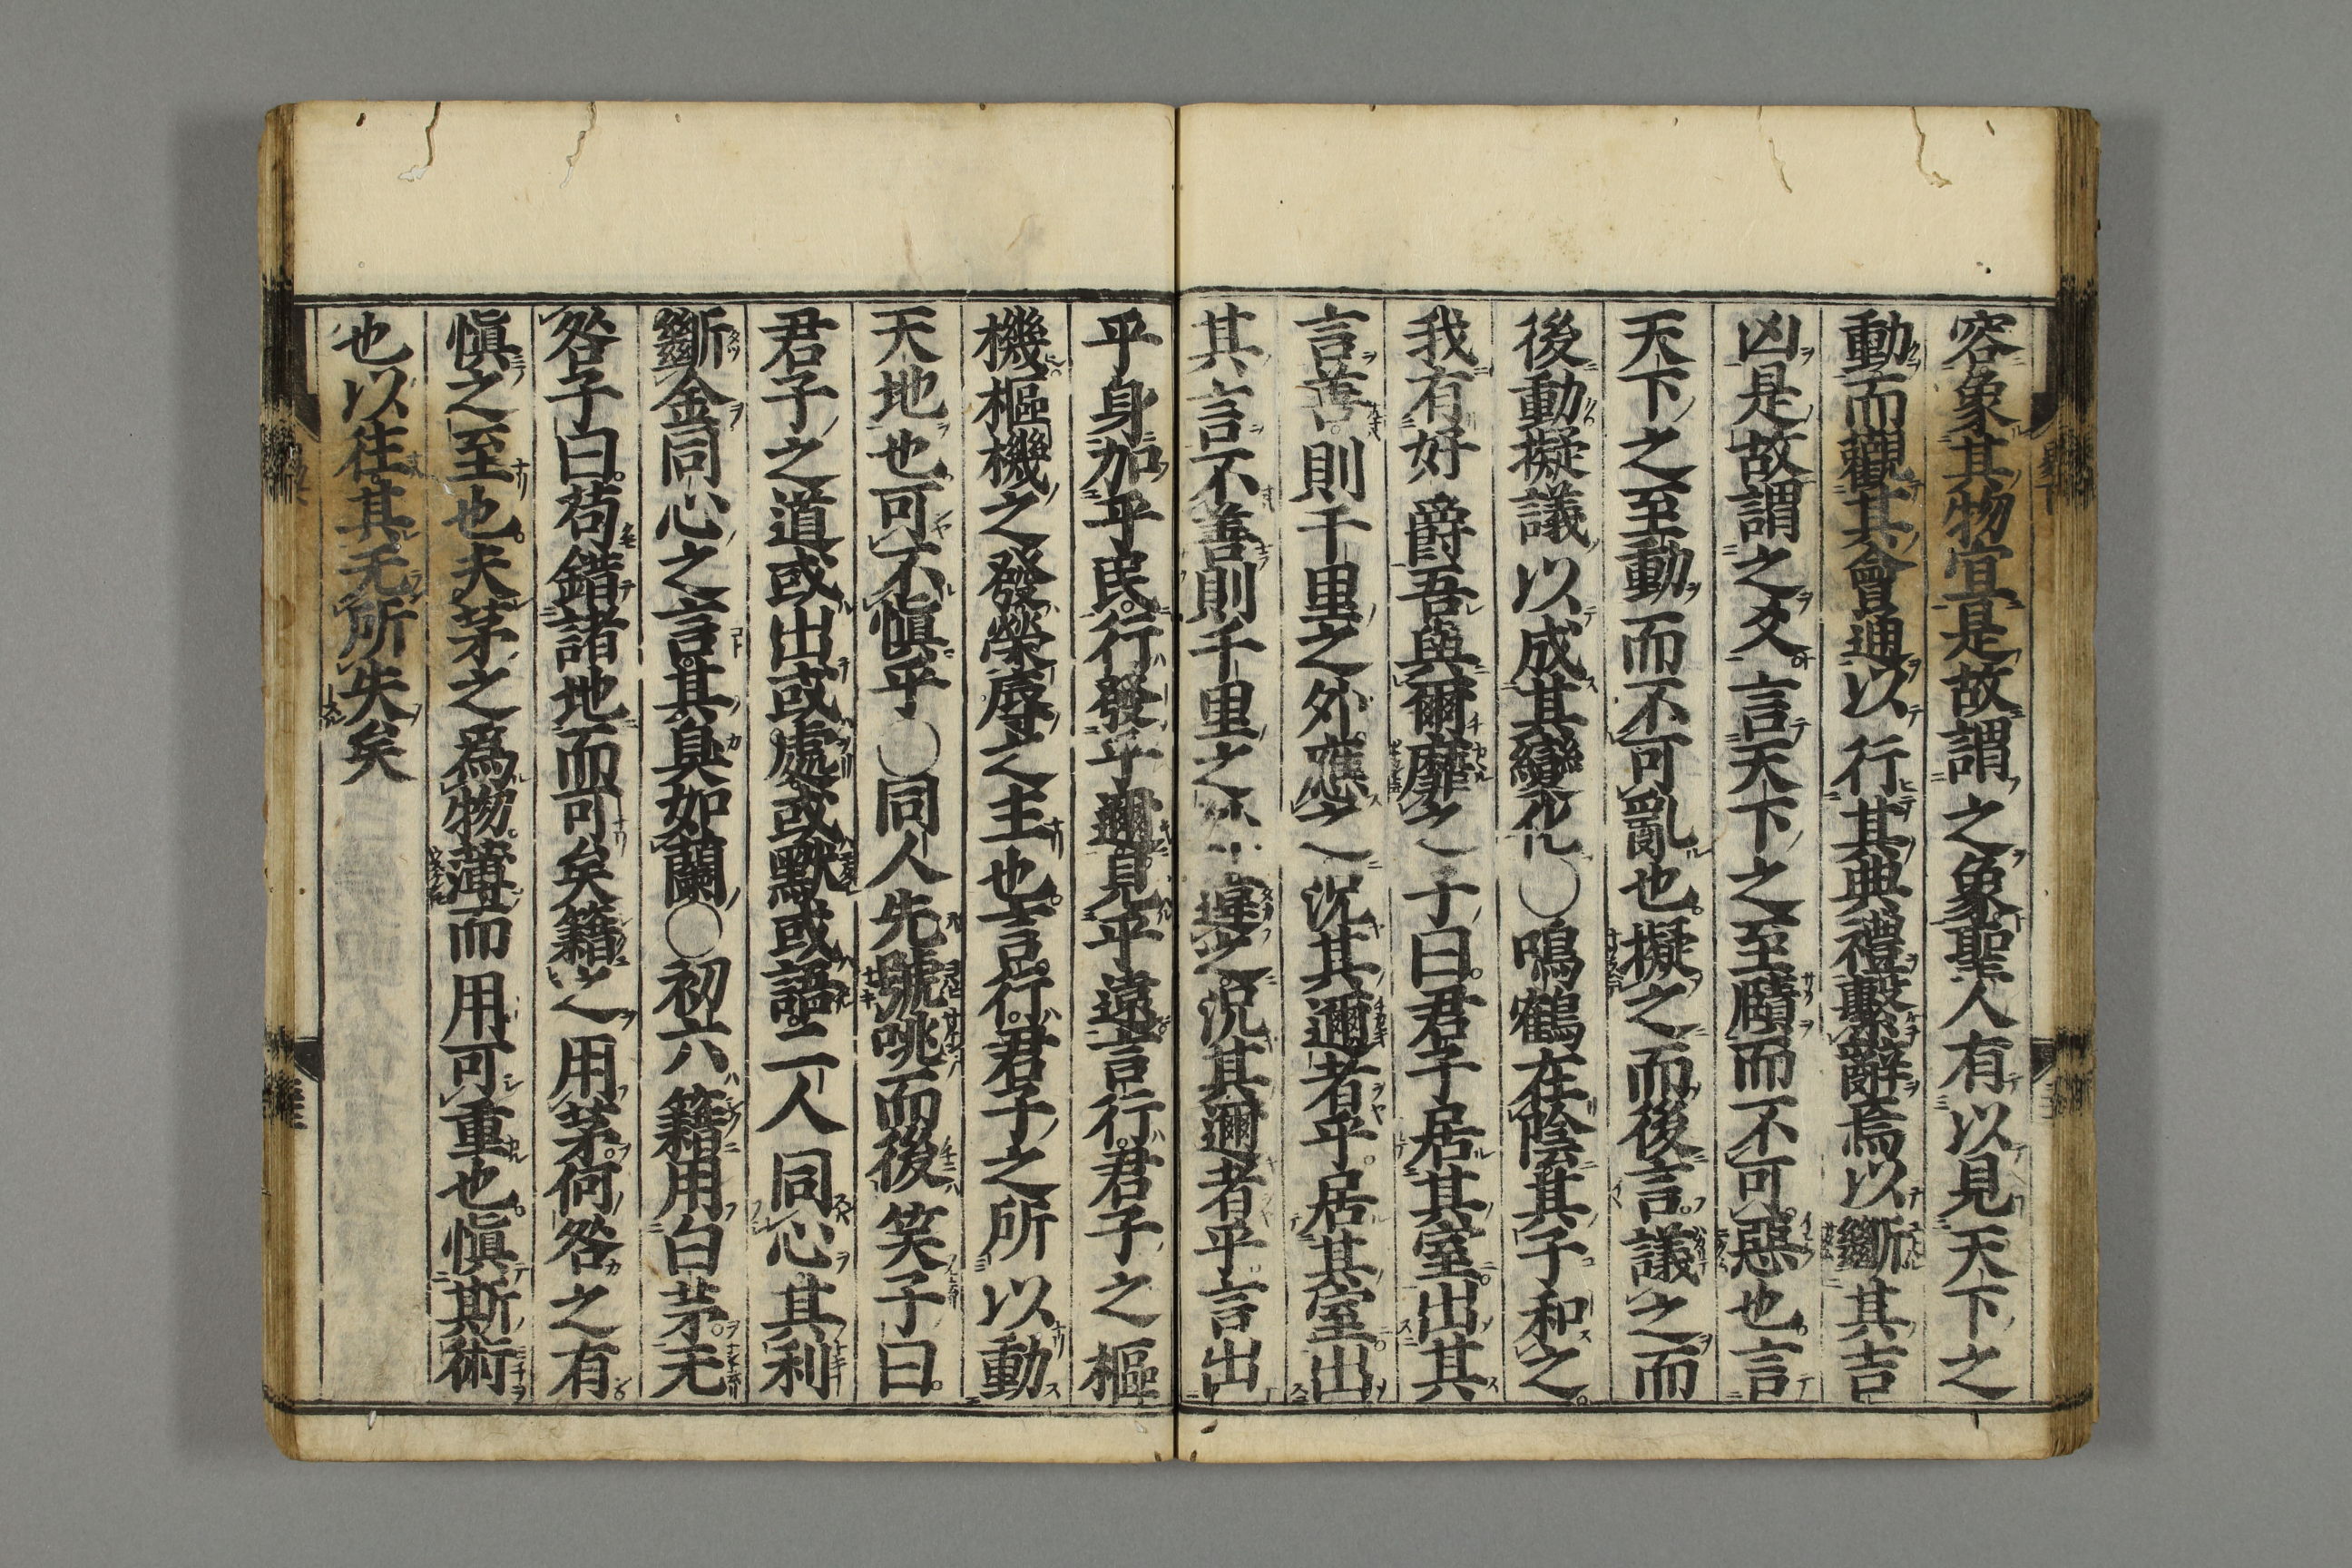 容象其物宜是故謂之象聖人有以見天下之
動而觀其會通以行其典禮繫辭焉以斷其吉
凶是故謂之爻言天下之至賾而不可惡也言
天下之至動而不可亂也擬之而後言議之而
後動擬議以成其變化○鳴鶴在陰其子和之
我有好爵吾與爾靡之子曰君子居其室出其
言善則千里之外應之況其邇者乎居其室出
其言不善則千里之外違之況其邇者乎言出
乎身加乎民行發乎邇見乎遠言行君子之樞
機樞機之發榮辱之主也言行君子之所以動
天地也可不愼乎○同人先號咷而後笑子曰
君子之道或出或處或默或語二人同心其利
斷金同心之言其臭如蘭○初六籍用白茅无
咎子曰苟錯諸地而可矣籍之用茅何咎之有
愼之至也夫茅之爲物薄而用可重也愼斯術
也以往其无所失矣